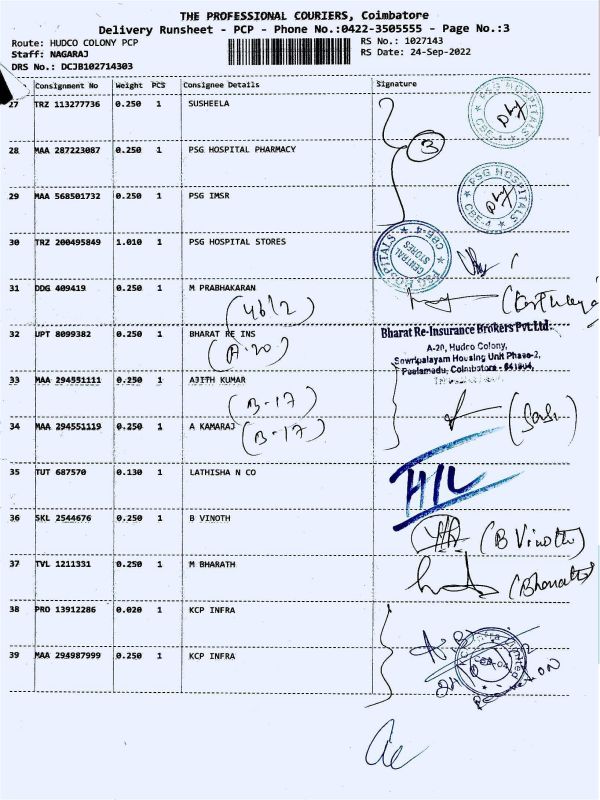 THE PROFESSIONAL COURIERS, Coimbatore
Delivery Runsheet - PCP - Phone No.:0422-3505555 - Page No.:3
Route: HUDCO COLONY PCP RS No.: 1027143
Staff: NAGARAJ RS Date: 24-Sep-2022
DRS No.: DCJB102714303
Consignment No Weight PCS Consignee Details Signature
27 TRZ 113277736 0.250 1 SUSHEELA
PSG HOSPITALS CBE-4
28 MAA 287223087 0.250 1 PSG HOSPITAL PHARMACY 3
29 MAA 568501732 0.250 1 PSG IMSR
PSG HOSPITALS CBE-4
30 TRZ 200495849 1.010 1 PSG HOSPITAL STORES
PSG HOSPITALS CBE-4 CENTRAL STORES
31 DDG 409419 0.250 1 M PRABHAKARAN
(46/2)
32 UPT 8099382 0.250 1 BHARAT RE INS
(A-20)
Bharat Re-Insurance Brokers Pvt.Ltd.
A-20, Hudco Colony,
Sowripalayam Housing Unit Phase-2,
Peelamedu, Coimbatore - 641004,
33 MAA 294551111 0.250 1 AJITH KUMAR
(B-17)
34 MAA 294551119 0.250 1 A KAMARAJ
(B-17)
35 TUT 687570 0.130 1 LATHISHA N CO
H/L
36 SKL 2544676 0.250 1 B VINOTH (B Vinoth)
37 TVL 1211331 0.250 1 M BHARATH (Bharath)
38 PRO 13912286 0.020 1 KCP INFRA
39 MAA 294987999 0.250 1 KCP INFRA
KCP Infra Limited